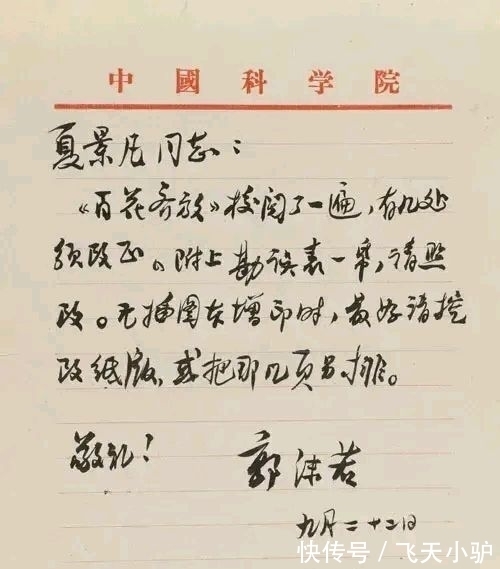 中國科学院
夏景凡同志：
《百花齐放》校阅了一遍，有几处
须改正。附上勘误表一帋，请照
改。无插图本增印时，最好请挖
改纸版，或把那几页另排。
敬礼！
郭沫若
九月二十二日
快传号／飞天小驴